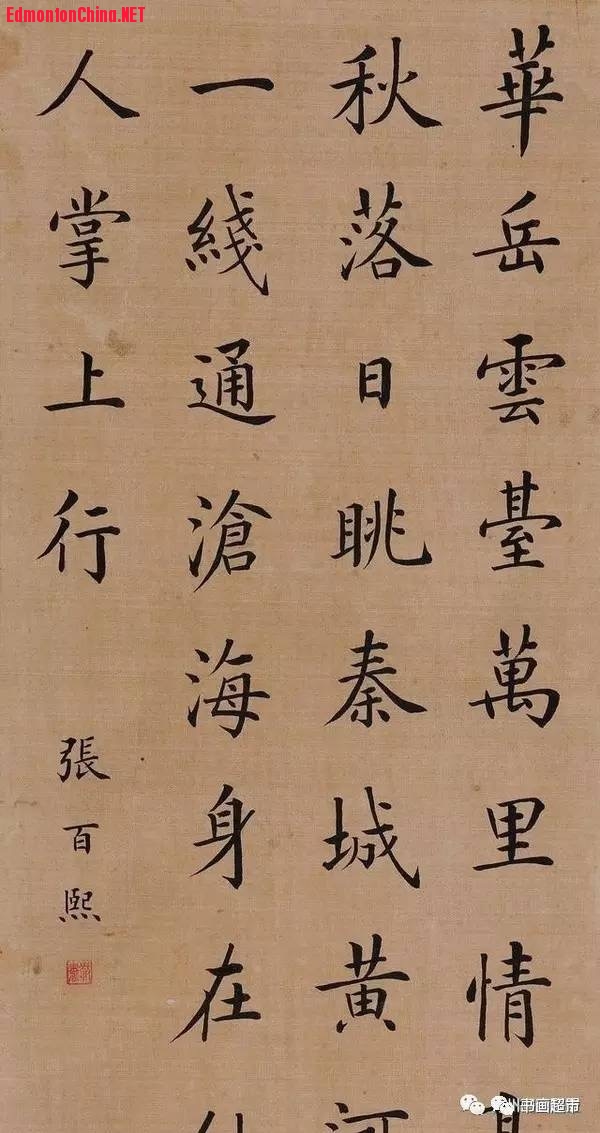 EdmontonChina.NET
華岳雲臺萬里情
秋落日眺秦城黃河
一綫通滄海身在
人掌上行
張百熙
书画超市